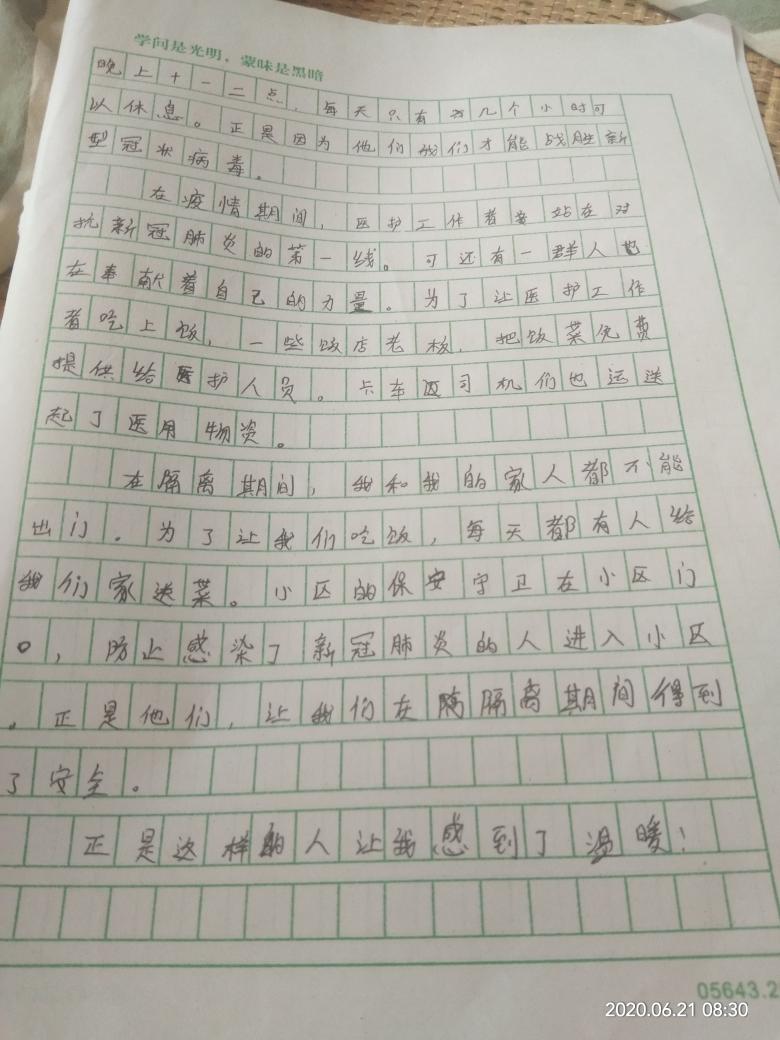 学问是光明，蒙昧是黑暗
晚上十一二点，每天只有几个小时可
以休息。正是因为他们我们才能战胜新
型冠状病毒。
在疫情期间，医护工作者站在对
抗新冠肺炎的第一线。可还有一群人也
在奉献着自己的力量。为了让医护工作
者吃上饭，一些饭店老板，把饭菜免费
提供给医护人员。卡车司机们也运送
起了医用物资。
在隔离期间，我和我的家人都不能
出门。为了让我们吃饭，每天都有人给
我们家送菜。小区的保安守卫在小区门
口，防止感染了新冠肺炎的人进入小区
。正是他们，让我们在隔离期间得到
了安全。
正是这样的人让我感到了温暖！
05643.2
2020.06.21 08:30